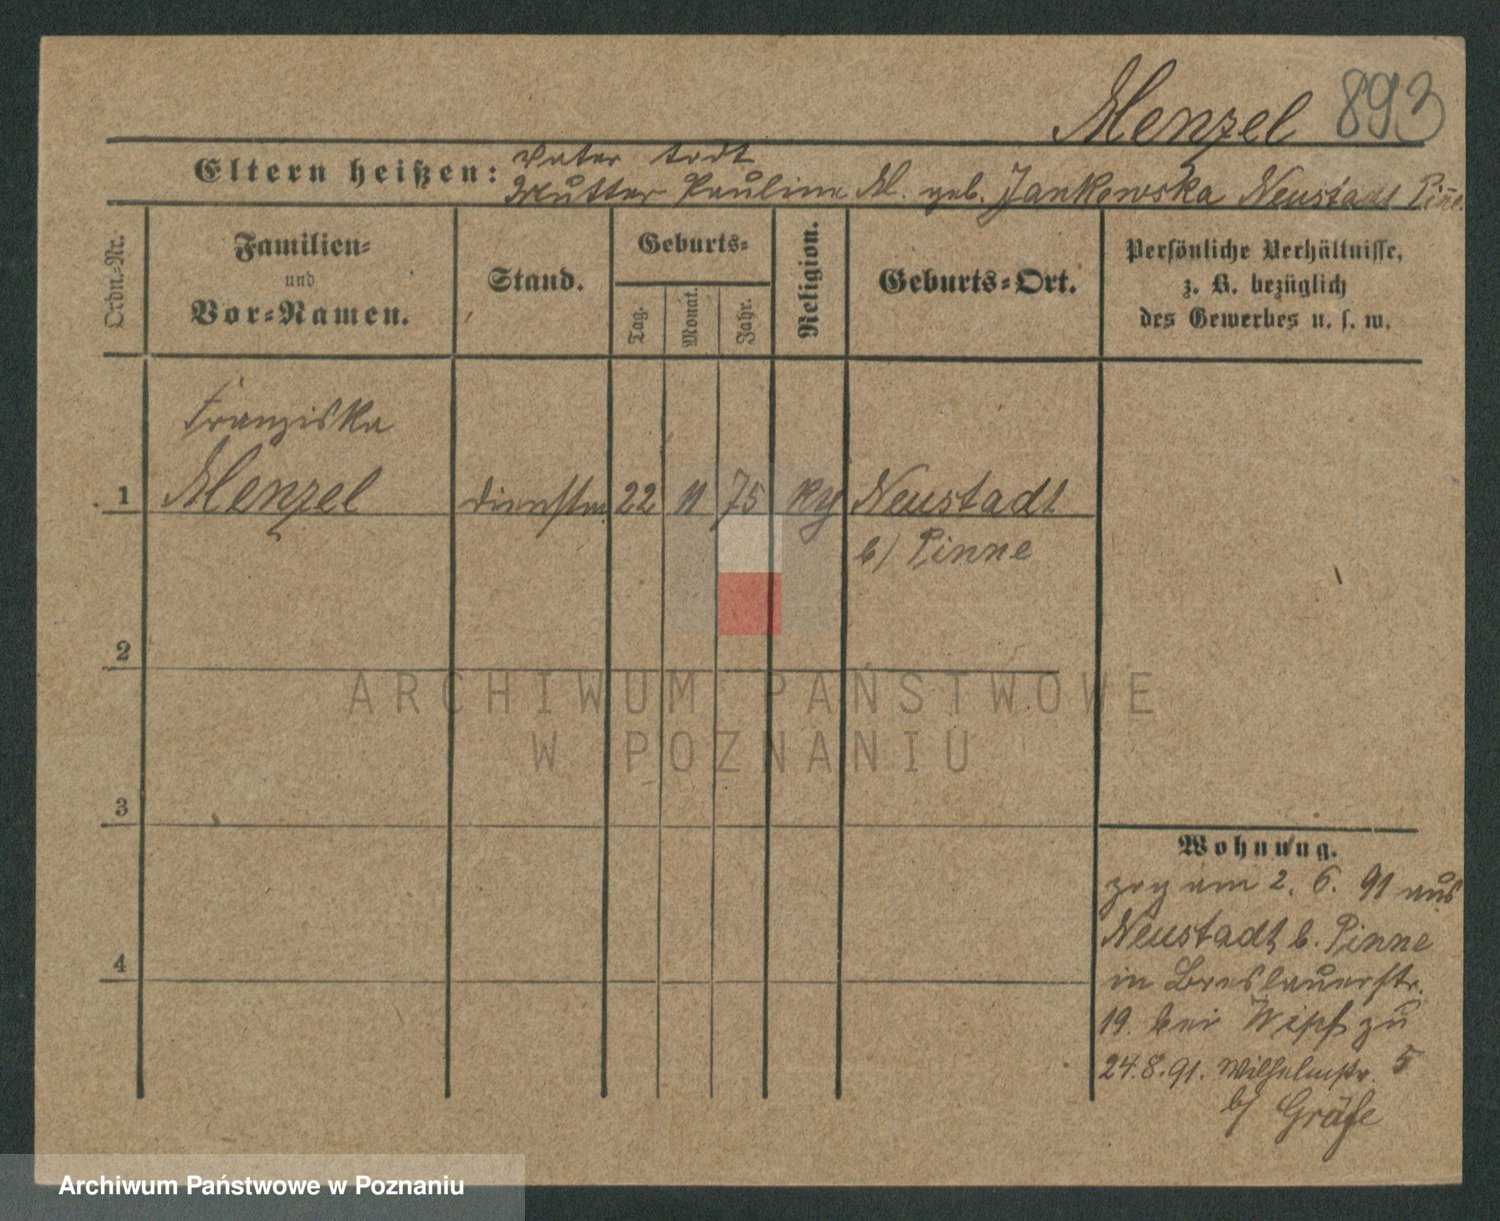 Menzel 893
Eltern heißen: Vater todt
Mutter Pauline M. geb. Jankowska Neustadt Pinne.
Ordn.-Nr.
Familien-
und
Vor-Namen.
Stand.
Geburts-
Tag.
Monat.
Jahr.
Religion.
Geburts-Ort.
Persönliche Verhältnisse,
z. B. bezüglich
des Gewerbes u. s. w.
Franziska
1 Menzel Dienstm. 22 11 75 Neustadt
b/ Pinne
2
ARCHIWUM PAŃSTWOWE
W POZNANIU
3
Wohnung.
zog am 2. 6. 91 aus
Neustadt b. Pinne
4
in Breslauerstr.
19. bei Wipf zu
24.8.91. Wilhelmstr. 5
b/ Gräfe
Archiwum Państwowe w Poznaniu